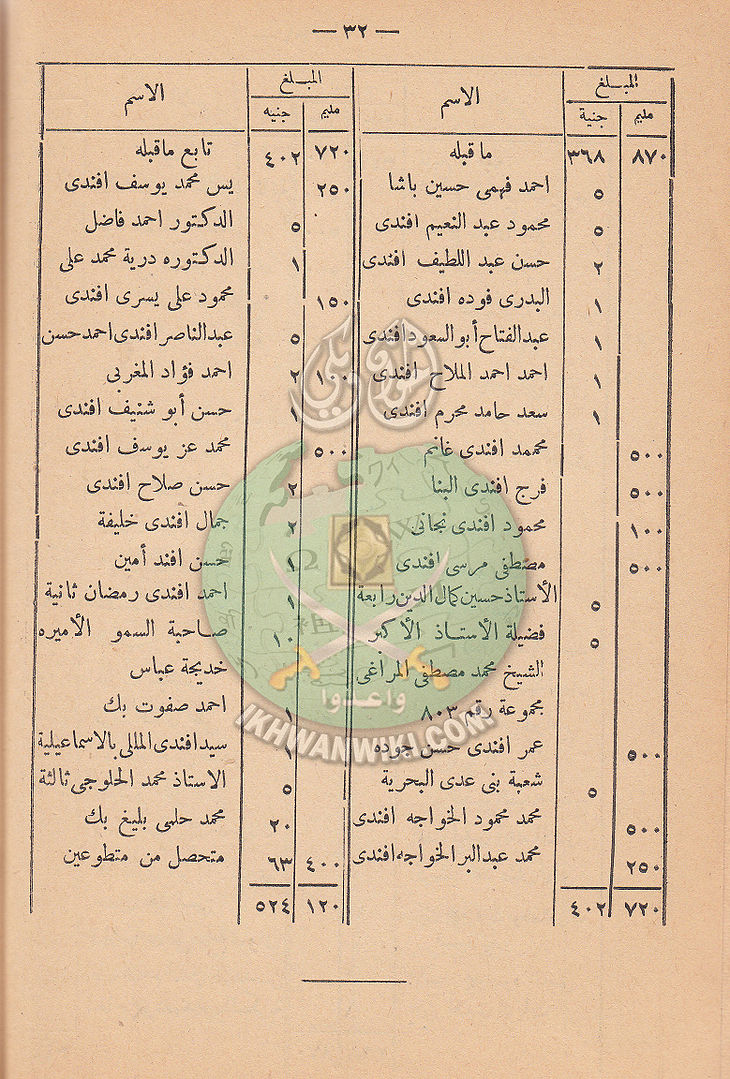 — ٣٢ —
المبلغ الاسم
مليم جنية
٨٧٠ ٣٦٨ ما قبله
٥ احمد فهمى حسين باشا
٥ محمود عبد النعيم افندى
٢ حسن عبد اللطيف افندى
١ البدرى فوده افندى
١ عبدالفتاح أبو السعود افندى
١ احمد احمد الملاح افندى
١ سعد حامد محرم افندى
٥٠٠ محمد افندى غانم
٥٠٠ فرج افندى البنا
١٠٠ محمود افندى نجاتى
٥٠٠ مصطفى مرسى افندى
٥ الأستاذ حسين كمال الدين رابعة
٥ فضيلة الأستاذ الأكبر
الشيخ محمد مصطفى المراغى
مجموعة رقم ٨٠٣
٥٠٠ عمر افندى حسن جوده
٥ شعبة بنى عدى البحرية
٥٠٠ محمد محمود الخواجه افندى
٢٥٠ محمد عبدالبر الخواجه افندى
٧٢٠ ٤٠٢
المبلغ الاسم
مليم جنيه
٧٢٠ ٤٠٢ تابع ماقبله
٢٥٠ يس محمد يوسف افندى
٥ الدكتور احمد فاضل
١ الدكتوره درية محمد على
١٥٠ محمود على يسرى افندى
٥ عبدالناصر افندى احمد حسن
١٠٠ ٢ احمد فؤاد المغربى
١ حسن أبو شنيف افندى
٥٠٠ محمد عز يوسف افندى
٢ حسن صلاح افندى
٢ جمال افندى خليفة
١ حسن افند أمين
١ احمد افندى رمضان ثانية
١٠ صاحبة السمو الأميره
خديجة عباس
١ احمد صفوت بك
١ سيد افندى المللى بالاسماعيلية
٥ الاستاذ محمد الحلوجى ثالثة
٢٠ محمد حلمى بليغ بك
٤٠٠ ٦٣ متحصل من متطوعين
١٢٠ ٥٢٤
واعدوا
IKHWANWIKI.COM